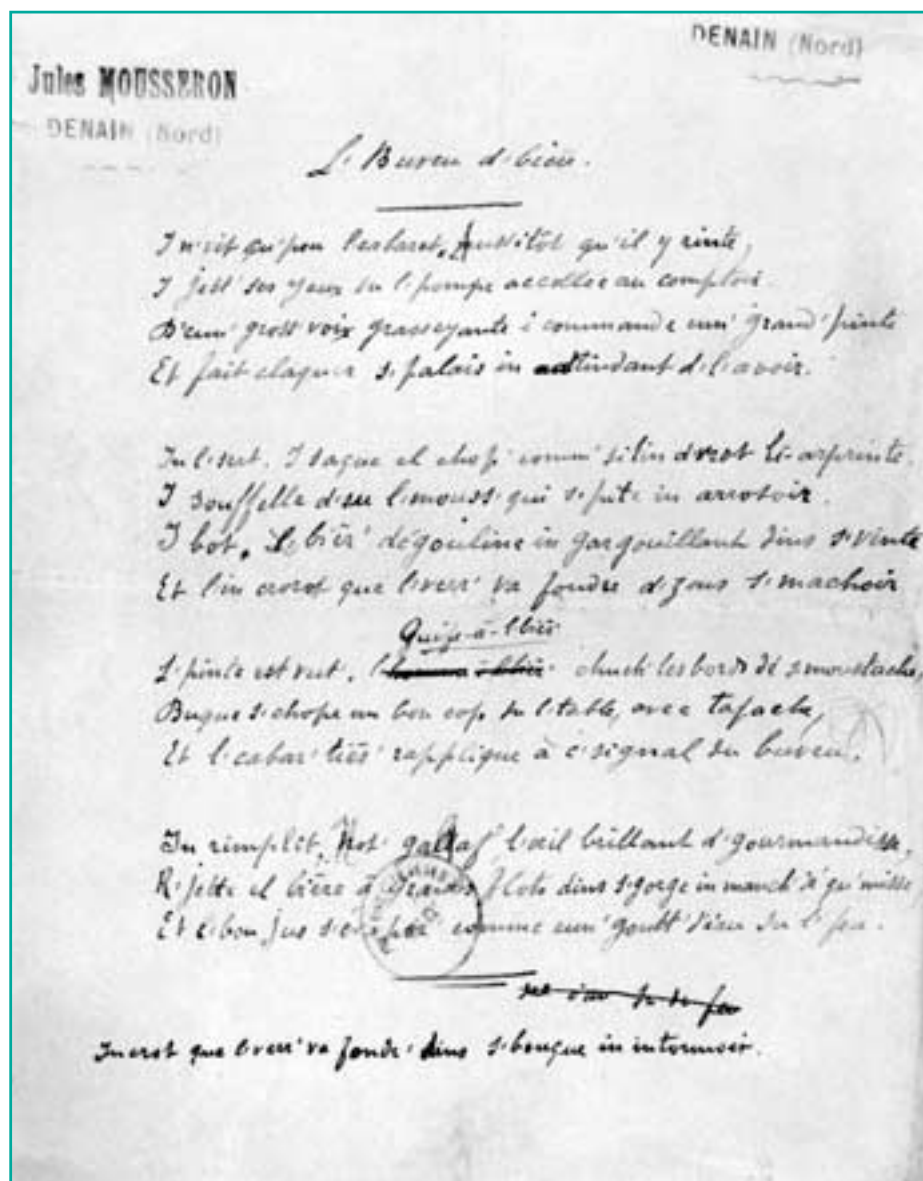 DENAIN (Nord)
Jules MOUSSERON
DENAIN (Nord)
L' Buveu d' bière.
I n' vit qu' pou l' cabaret, Aussitôt qu'il y rinte,
I jett' ses yeux su l' pompe accollée au comptoir.
D'eun' gross' voix grasseyante i commande eun' grand' pinte
Et fait claquer s' palais in attindant d' l'avoir.
In l' sert. I saque el chop' comm' si l'in dvrot li arprinte.
I souffelle d'su l' mouss' qui s' pite in arrosoir.
I bot, L' bièr' dégouline in gargouillant dins s' vinte
Et l'in crorot que l' verr' va fondre d' zous s' machoir
Quife-à-l'bière
L' pinte est vut', l' chuch' les bords dé s' moustache,
Buque s' chope un bon cop su l' table, avec
Et l' cabar'tier rapplique à c' signal du buveu.
In rimplit, Not' gaillaf l'œil brillant d' gourmandisse,
R'jette el bière à grands flots dins s' gorge in manch' dé qu'misse
Et l' bon jus s'évapor' comme eun' goutt' d'eau su l' feu.
su du feu
In crot que l' verr' va fond' dins s' bouque in intonnoir.